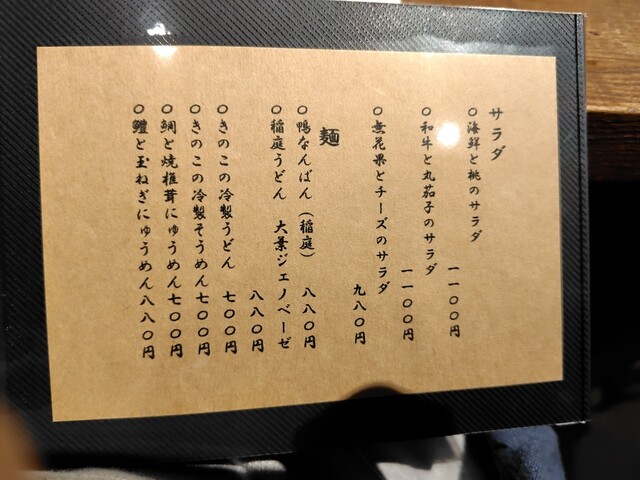 サラダ
○海鮮と桃のサラダ
一一〇〇円
○和牛と丸茄子のサラダ
一一〇〇円
○無花果とチーズのサラダ
九八〇円
麺
○鴨なんばん（稲庭）　八八〇円
○稲庭うどん　大葉ジェノベーゼ
八八〇円
○きのこの冷製うどん　七〇〇円
○きのこの冷製そうめん七〇〇円
○鯛と焼椎茸にゅうめん七〇〇円
○鱧と玉ねぎにゅうめん八八〇円